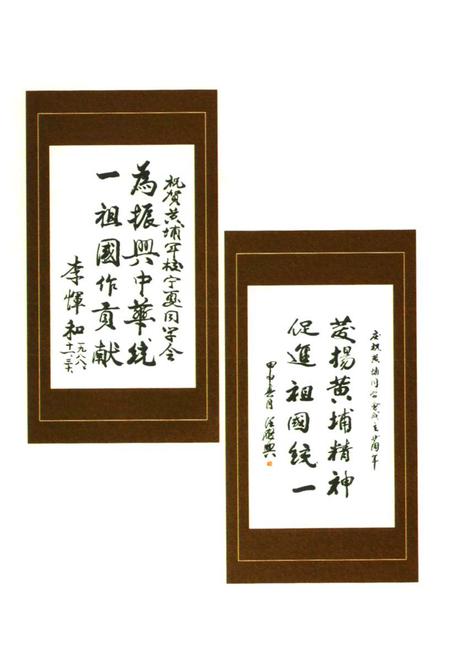 祝贺黄埔军校宁夏同学会
为振興中華统
一祖國作貢献
李惲和
一九八八、
十一、三十、
庆祝黄埔同学会成立廿周年
发揚黄埔精神
促進祖國统一
甲申春月